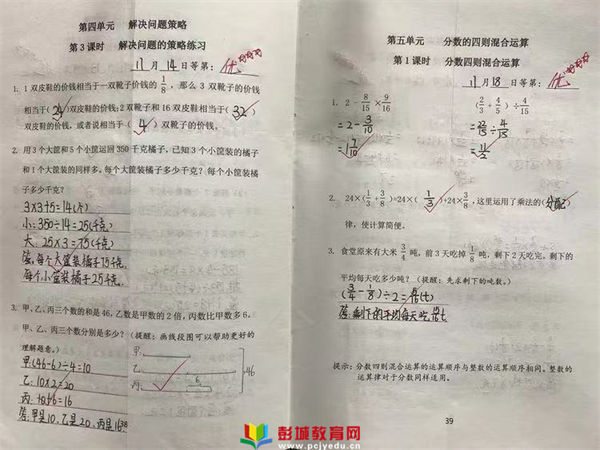 第四单元 解决问题策略
第3课时 解决问题的策略练习
11月14日等第：优
1. 1双皮鞋的价钱相当于一双靴子价钱的1/8，那么3双靴子的价钱
相当于(24)双皮鞋的价钱；2双靴子和16双皮鞋相当于(32)
双皮鞋的价钱，或者说相当于(4)双靴子的价钱。
2. 用3个大筐和5个小筐运回350千克橘子，已知3个小筐装的橘子
和1个大筐装的同样多，每个大筐装橘子多少千克？每个小筐装橘
子多少千克？
3×3+5=14(个)
小：350÷14=25(千克)
大：25×3=75(千克)
答：每个大筐装橘子75千克，
每个小筐装橘子25千克。
3. 甲、乙、丙三个数的和是46，乙数是甲数的2倍，丙数比甲数多6。
甲、乙、丙三个数分别是多少？（提醒：画线段图可以帮助更好的
理解题意。）
甲:(46-6)÷4=10
乙:10×2=20
丙:10+6=16
答:甲是10,乙是20,丙是16
38
甲
乙
丙
6
46
第五单元 分数的四则混合运算
第1课时 分数四则混合运算
11月18日等第：优
1. 2－8/15×9/16
(2/3+4/5)÷4/15
=2-3/10
=22/15÷4/15
=1 7/10
=11/2
2. 24×(1/3+3/8)=24×(1/3)+24×3/8，这里运用了乘法的(分配)
律，使计算简便。
3. 食堂原来有大米3/4吨，前3天吃掉1/8吨，剩下2天吃完。剩下的
平均每天吃多少吨？（提醒：先求剩下的吨数。）
(3/4-1/8)÷2=5/16(t)
答:剩下的平均每天吃5/16t
提示：分数四则混合运算的运算顺序与整数的运算顺序相同。整数的
运算律对于分数同样适用。
39
彭城教育网
www.pcjyedu.cn